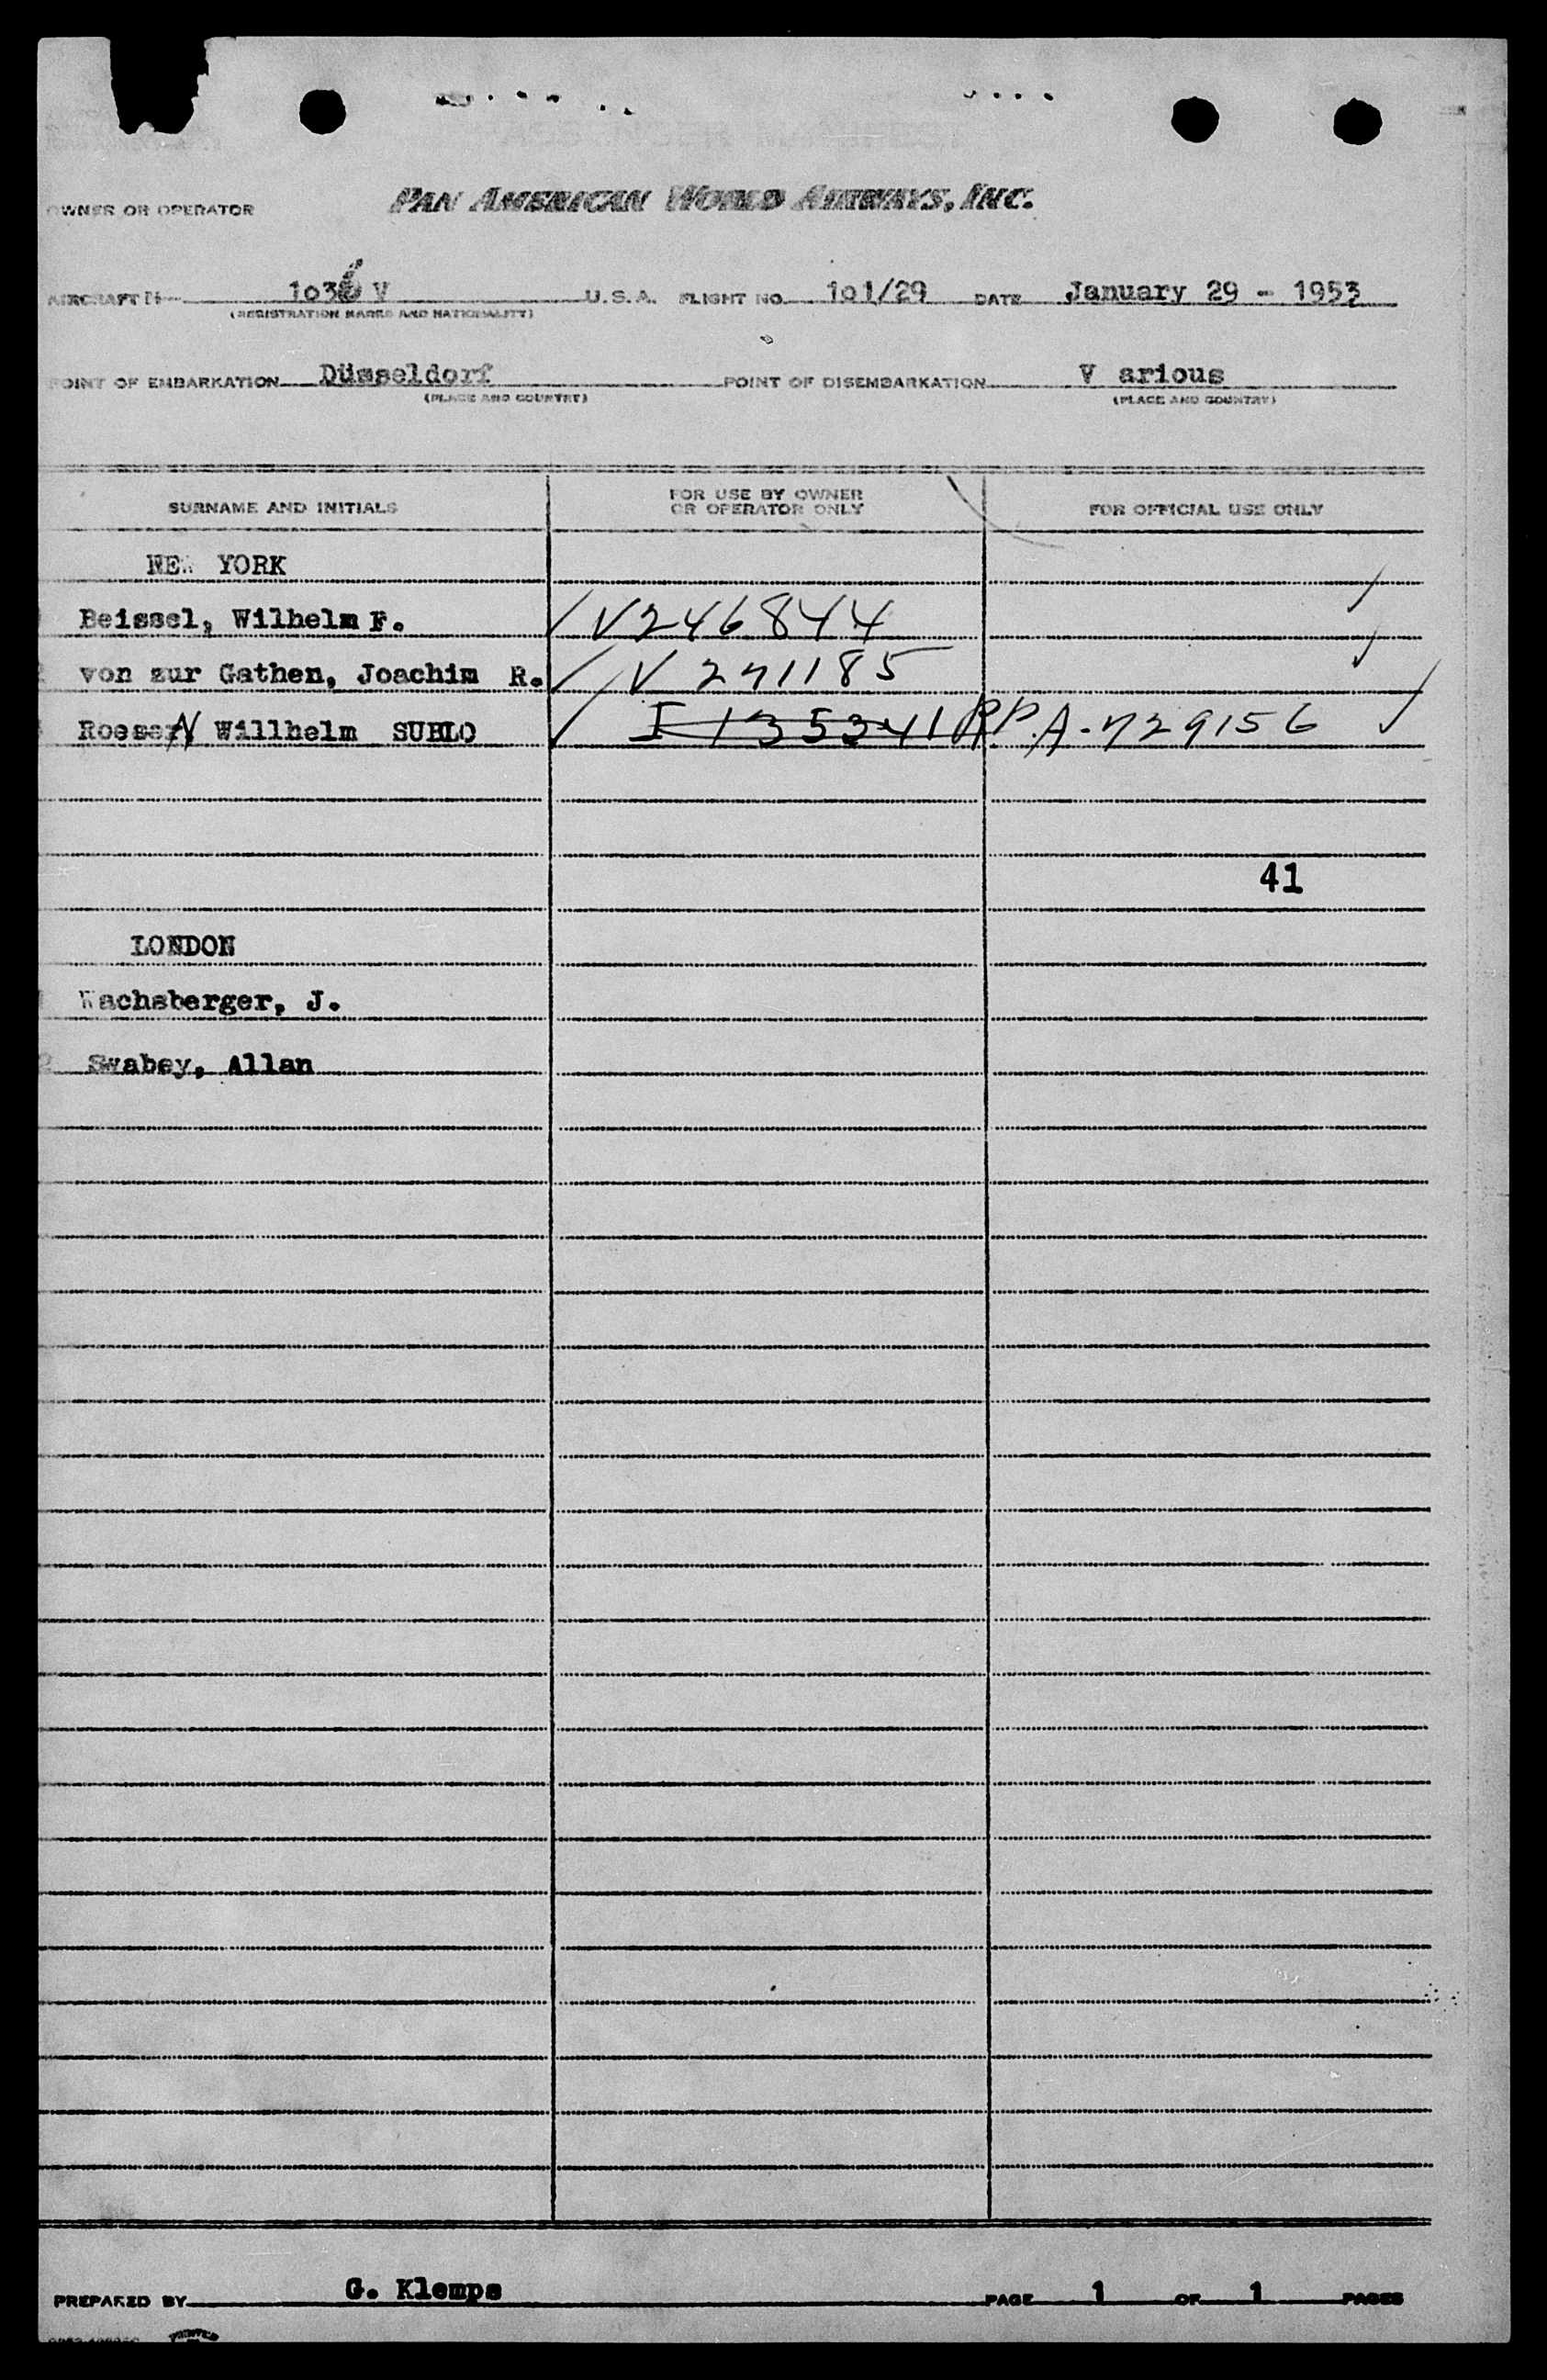 OWNER OR OPERATOR PAN AMERICAN WORLD AIRWAYS, INC.
AIRCRAFT N 1036 V U.S.A. FLIGHT NO. 101/29 DATE January 29 - 1953
(REGISTRATION MARKS AND NATIONALITY)
POINT OF EMBARKATION Düsseldorf POINT OF DISEMBARKATION V arious
(PLACE AND COUNTRY) (PLACE AND COUNTRY)
SURNAME AND INITIALS FOR USE BY OWNER OR OPERATOR ONLY FOR OFFICIAL USE ONLY
NEW YORK
Beissel, Wilhelm F. V246844
von zur Gathen, Joachim R. V 271185
Roeser, Willhelm SUHLO I 135341 RP A-729156
41
LONDON
Wachsberger, J.
2 Swabey, Allan
PREPARED BY G. Klemps PAGE 1 OF 1 PAGES